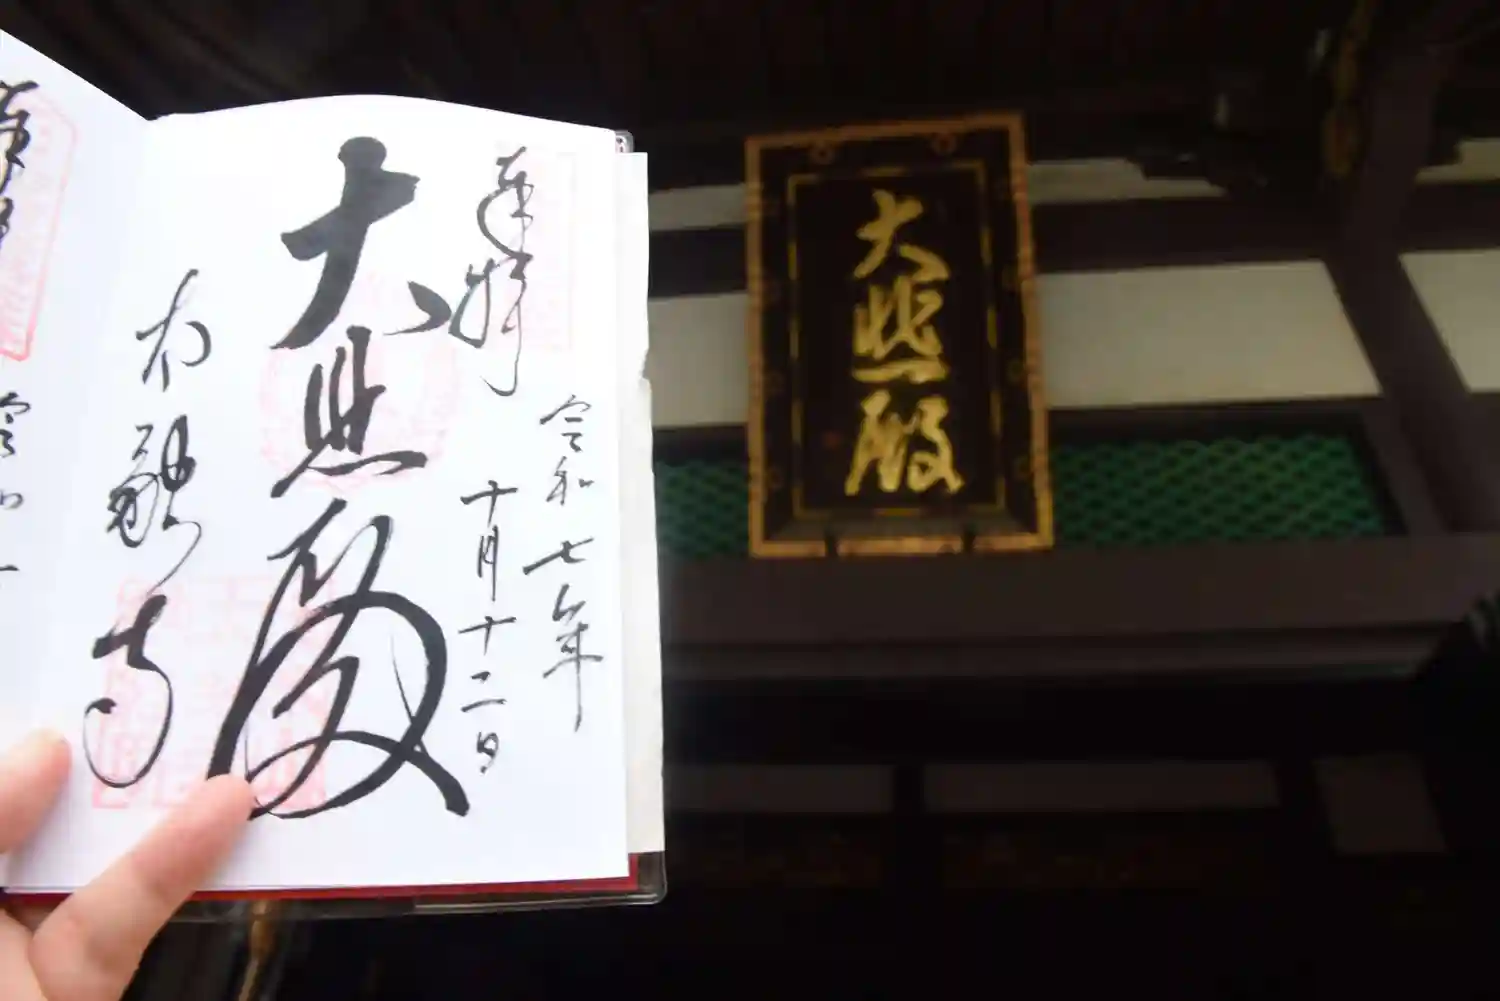 奉拝
令和七年
十月十二日
大悲殿
太融寺
大悲殿